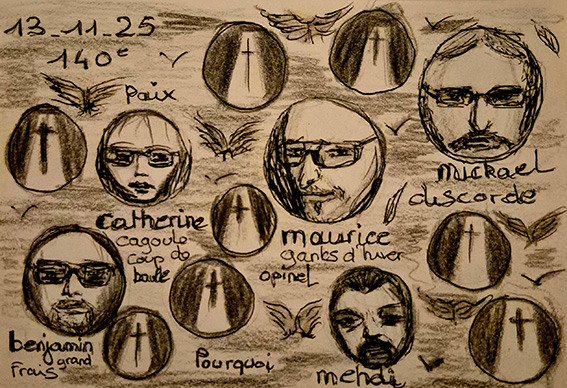 13-11-25
140e
Paix
mickael
discorde
catherine
cagoule
coup de
boule
maurice
gants d'hiver
opinel
benjamin
grand
frais
Pourquoi
mehdi